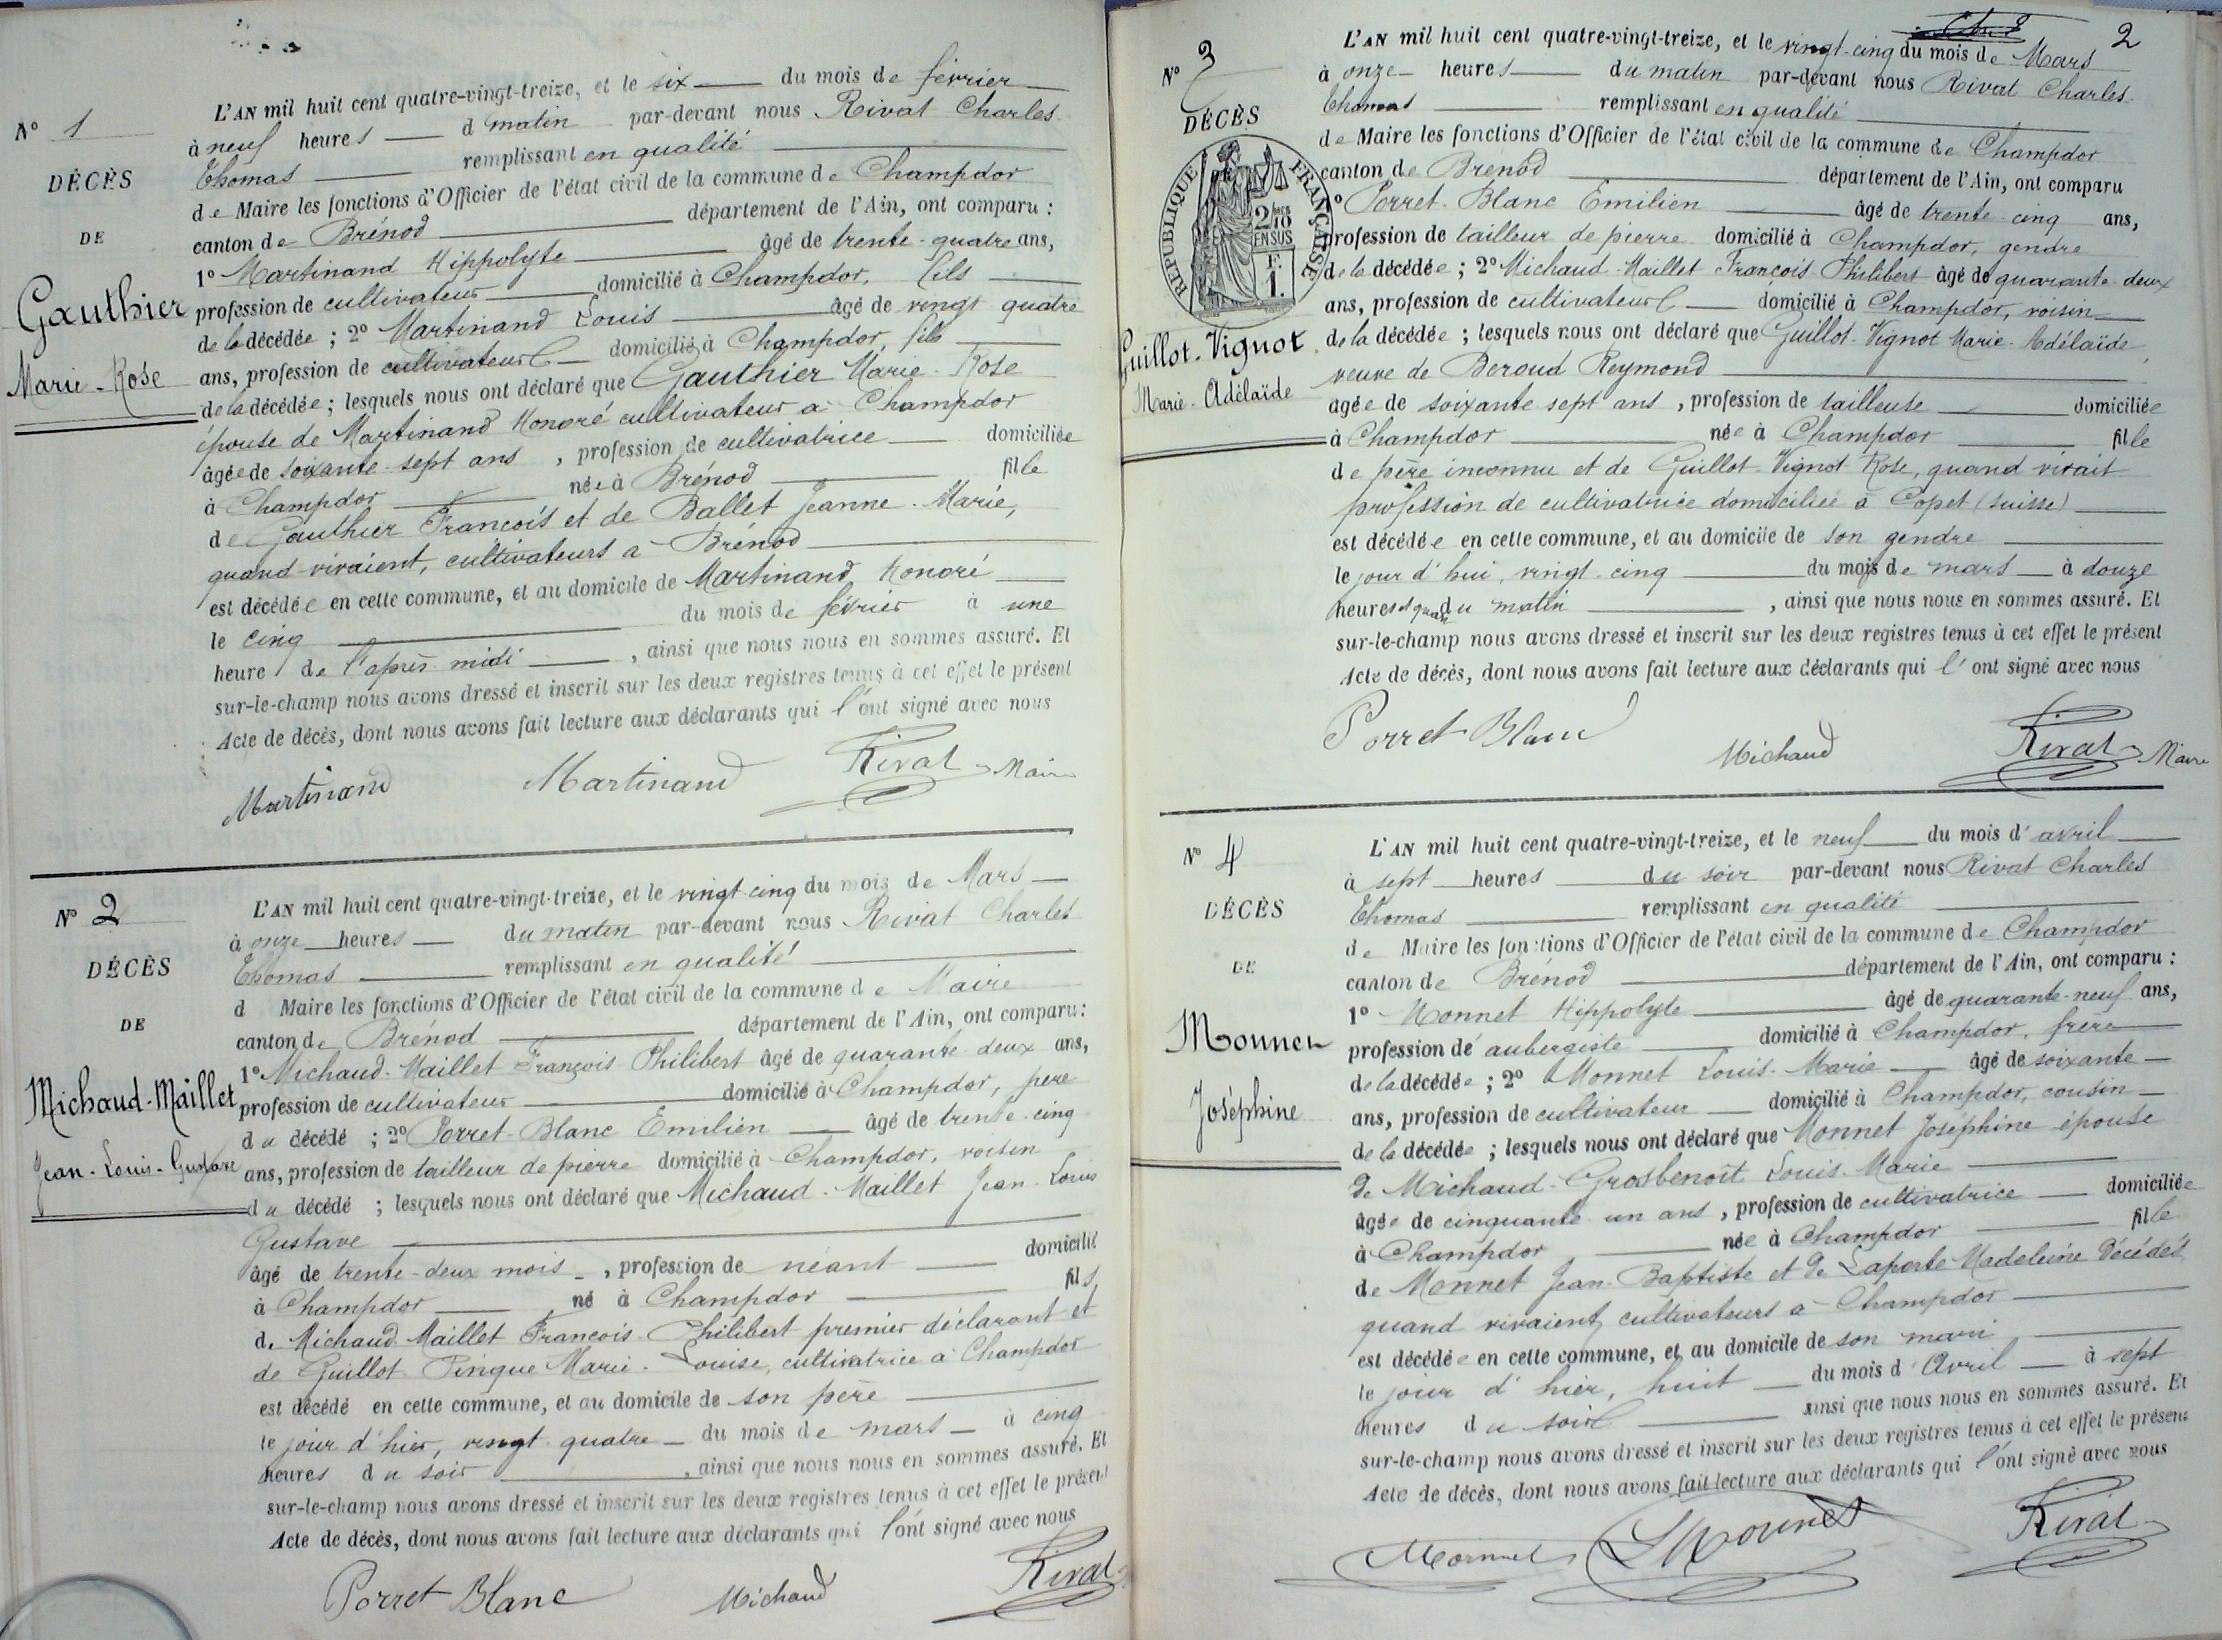 N° 1
DÉCÈS
DE
Gauthier
Marie-Rose
L'AN mil huit cent quatre-vingt-treize, et le six du mois de février
à neuf heures d matin par-devant nous Rivat Charles
Thomas remplissant en qualité
de Maire les fonctions d'Officier de l'état civil de la commune de Champdor
canton de Brénod département de l'Ain, ont comparu :
1° Martinand Hippolyte âgé de trente-quatre ans,
profession de cultivateur domicilié à Champdor, fils
de la décédée ; 2° Martinand Louis âgé de vingt quatre
ans, profession de cultivateur domicilié à Champdor, fils
de la décédée ; lesquels nous ont déclaré que Gauthier Marie-Rose
épouse de Martinand Honoré cultivateur à Champdor
âgée de soixante-sept ans , profession de cultivatrice domiciliée
à Champdor née à Brénod fille
de Gauthier François et de Ballet Jeanne-Marie,
quand vivaient, cultivateurs à Brénod
est décédée en cette commune, et au domicile de Martinand Honoré
le cinq du mois de février à une
heure de l'après midi , ainsi que nous nous en sommes assuré. Et
sur-le-champ nous avons dressé et inscrit sur les deux registres tenus à cet effet le présent
Acte de décès, dont nous avons fait lecture aux déclarants qui l'ont signé avec nous
Martinand Martinand Rivat Maire
N° 2
DÉCÈS
DE
Michaud-Maillet
Jean-Louis-Gustave
L'AN mil huit cent quatre-vingt-treize, et le vingt-cinq du mois de Mars
à onze heures du matin par-devant nous Rivat Charles
Thomas remplissant en qualité
d Maire les fonctions d'Officier de l'état civil de la commune de Maire
canton de Brénod département de l'Ain, ont comparu :
1° Michaud-Maillet François Philibert âgé de quarante deux ans,
profession de cultivateur domicilié à Champdor, père
du décédé ; 2° Porret-Blanc Emilien âgé de trente-cinq
ans, profession de tailleur de pierre domicilié à Champdor, voisin
du décédé ; lesquels nous ont déclaré que Michaud-Maillet Jean-Louis
Gustave
âgé de trente-deux mois , profession de néant domicilié
à Champdor né à Champdor fils
de Michaud Maillet François Philibert premier déclarant et
de Guillot Pingue Marie-Louise, cultivatrice à Champdor
est décédé en cette commune, et au domicile de son père
le jour d'hier, vingt-quatre du mois de mars à cinq
heures du soir , ainsi que nous nous en sommes assuré. Et
sur-le-champ nous avons dressé et inscrit sur les deux registres tenus à cet effet le présent
Acte de décès, dont nous avons fait lecture aux déclarants qui l'ont signé avec nous
Porret Blanc Michaud Rivat
2
N° 3
DÉCÈS
RÉPUBLIQUE FRANÇAISE
2/10 EN SUS
F. 1.
Guillot-Vignot
Marie-Adélaïde
L'AN mil huit cent quatre-vingt-treize, et le vingt-cinq du mois de Mars
à onze heures du matin par-devant nous Rivat Charles
Thomas remplissant en qualité
de Maire les fonctions d'Officier de l'état civil de la commune de Champdor
canton de Brénod département de l'Ain, ont comparu
1° Porret-Blanc Emilien âgé de trente-cinq ans,
profession de tailleur de pierre domicilié à Champdor, gendre
de la décédée ; 2° Michaud-Maillet François Philibert âgé de quarante-deux
ans, profession de cultivateur domicilié à Champdor, voisin
de la décédée ; lesquels nous ont déclaré que Guillot-Vignot Marie-Adélaïde
veuve de Beroud Reymond
âgée de soixante sept ans , profession de tailleuse domiciliée
à Champdor née à Champdor fille
de père inconnu et de Guillot-Vignot Rose, quand vivait
profession de cultivatrice domiciliée à Copet (suisse)
est décédée en cette commune, et au domicile de son gendre
le jour d'hui, vingt-cinq du mois de mars à douze
heures et quart du matin , ainsi que nous nous en sommes assuré. Et
sur-le-champ nous avons dressé et inscrit sur les deux registres tenus à cet effet le présent
Acte de décès, dont nous avons fait lecture aux déclarants qui l'ont signé avec nous
Porret-Blanc Michaud Rivat Maire
N° 4
DÉCÈS
DE
Monnet
Joséphine
L'AN mil huit cent quatre-vingt-treize, et le neuf du mois d'avril
à sept heures du soir par-devant nous Rivat Charles
Thomas remplissant en qualité
de Maire les fonctions d'Officier de l'état civil de la commune de Champdor
canton de Brénod département de l'Ain, ont comparu :
1° Monnet Hippolyte âgé de quarante-neuf ans,
profession de aubergiste domicilié à Champdor, frère
de la décédée ; 2° Monnet Louis-Marie âgé de soixante
ans, profession de cultivateur domicilié à Champdor, cousin
de la décédée ; lesquels nous ont déclaré que Monnet Joséphine épouse
de Michaud-Grosbenoît Louis-Marie
âgée de cinquante un ans , profession de cultivatrice domiciliée
à Champdor née à Champdor fille
de Monnet Jean-Baptiste et de Laporte Madeleine décédés
quand vivaient cultivateurs à Champdor
est décédée en cette commune, et au domicile de son mari
le jour d'hier, huit du mois d'Avril à sept
heures du soir ainsi que nous nous en sommes assuré. Et
sur-le-champ nous avons dressé et inscrit sur les deux registres tenus à cet effet le présent
Acte de décès, dont nous avons fait lecture aux déclarants qui l'ont signé avec nous
Monnet L Monnet Rivat